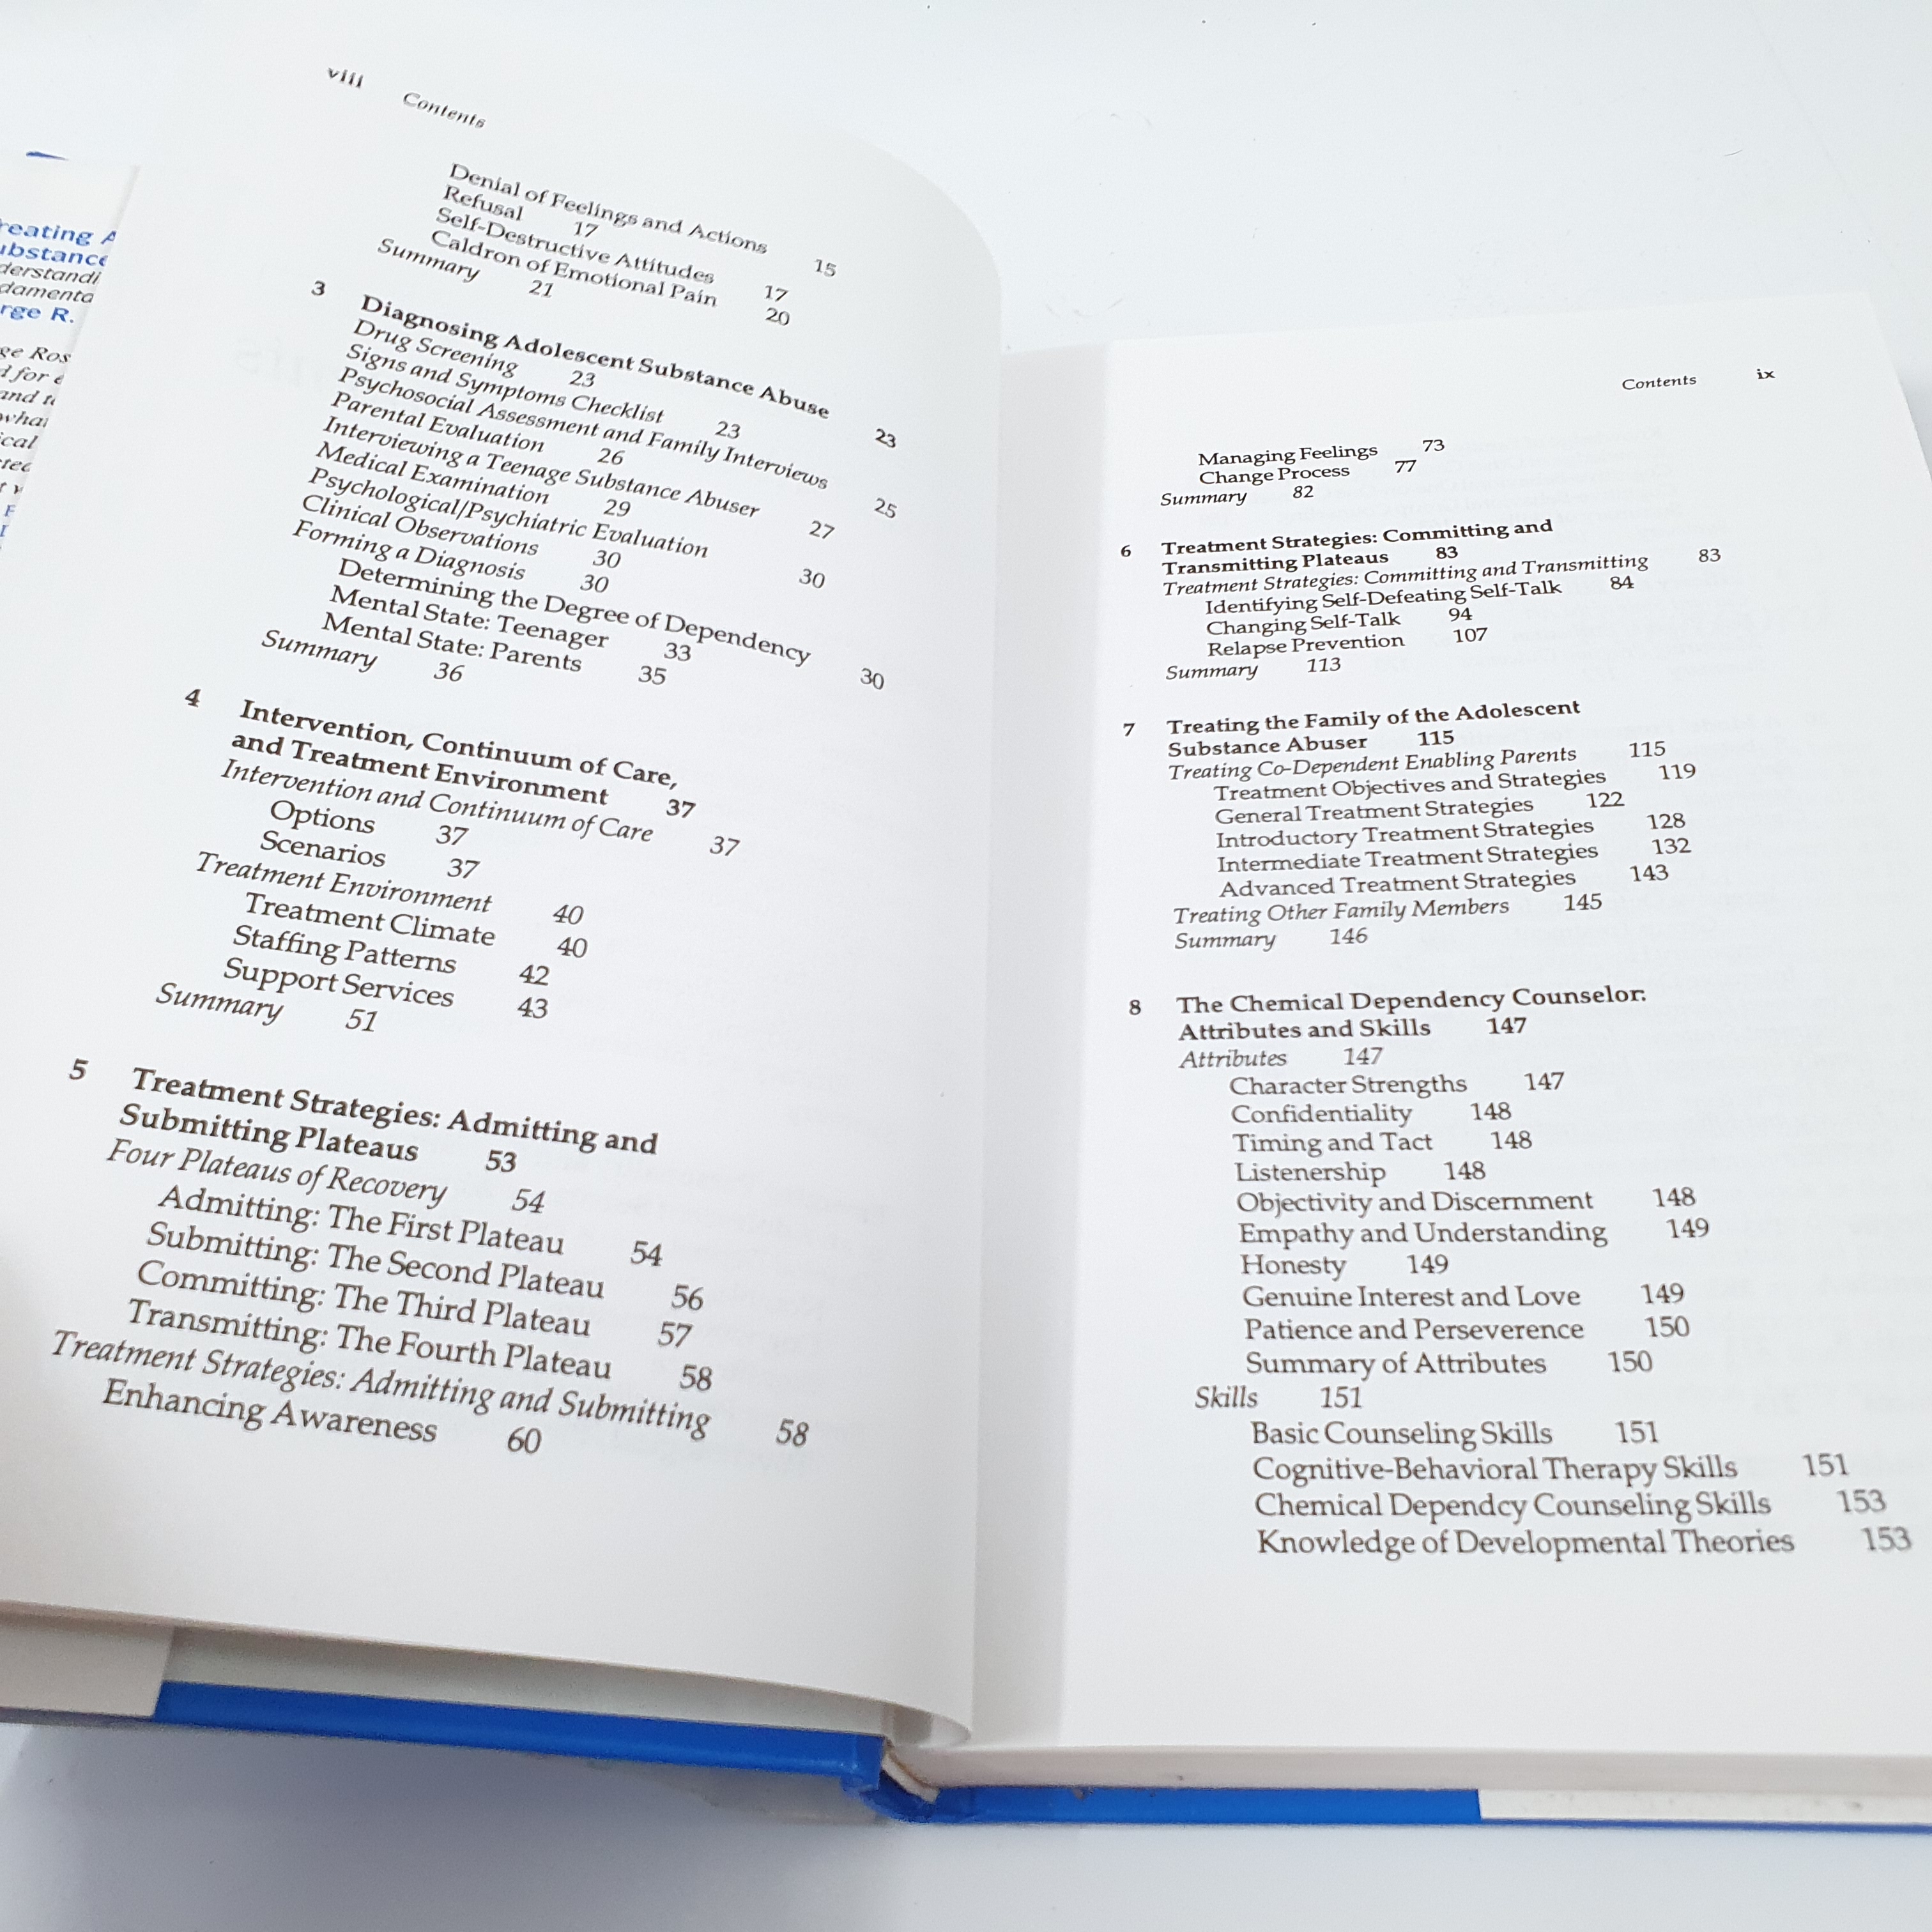 viii Contents
Denial of Feelings and Actions 15
Refusal 17
Self-Destructive Attitudes 17
Caldron of Emotional Pain 20
Summary 21
3 Diagnosing Adolescent Substance Abuse 23
Drug Screening 23
Signs and Symptoms Checklist 23
Psychosocial Assessment and Family Interviews 25
Parental Evaluation 26
Interviewing a Teenage Substance Abuser 27
Medical Examination 29
Psychological/Psychiatric Evaluation 30
Clinical Observations 30
Forming a Diagnosis 30
Determining the Degree of Dependency 30
Mental State: Teenager 33
Mental State: Parents 35
Summary 36
4 Intervention, Continuum of Care,
and Treatment Environment 37
Intervention and Continuum of Care 37
Options 37
Scenarios 37
Treatment Environment 40
Treatment Climate 40
Staffing Patterns 42
Support Services 43
Summary 51
5 Treatment Strategies: Admitting and
Submitting Plateaus 53
Four Plateaus of Recovery 54
Admitting: The First Plateau 54
Submitting: The Second Plateau 56
Committing: The Third Plateau 57
Transmitting: The Fourth Plateau 58
Treatment Strategies: Admitting and Submitting 58
Enhancing Awareness 60
Contents ix
Managing Feelings 73
Change Process 77
Summary 82
6 Treatment Strategies: Committing and
Transmitting Plateaus 83
Treatment Strategies: Committing and Transmitting 83
Identifying Self-Defeating Self-Talk 84
Changing Self-Talk 94
Relapse Prevention 107
Summary 113
7 Treating the Family of the Adolescent
Substance Abuser 115
Treating Co-Dependent Enabling Parents 115
Treatment Objectives and Strategies 119
General Treatment Strategies 122
Introductory Treatment Strategies 128
Intermediate Treatment Strategies 132
Advanced Treatment Strategies 143
Treating Other Family Members 145
Summary 146
8 The Chemical Dependency Counselor:
Attributes and Skills 147
Attributes 147
Character Strengths 147
Confidentiality 148
Timing and Tact 148
Listenership 148
Objectivity and Discernment 148
Empathy and Understanding 149
Honesty 149
Genuine Interest and Love 149
Patience and Perseverence 150
Summary of Attributes 150
Skills 151
Basic Counseling Skills 151
Cognitive-Behavioral Therapy Skills 151
Chemical Dependcy Counseling Skills 153
Knowledge of Developmental Theories 153